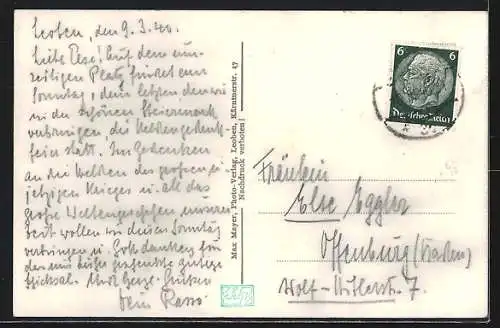 Leoben, den 9.3.40.
Liebe Else! Auf dem um-
seitigen Platz findet am
Sonntag, dem letzten, den wir
in der schönen Steiermark
verbringen, die Heldengedenk-
feier statt. Im Gedenken
an die Helden des großen u.
jetzigen Krieges u. all das
große Weltengeschehen, unserer
Zeit wollen wir diesen Sonntag
verbringen u. Gott danken für
das uns bisher geschenkte gütige
Schicksal. Herzl. Grüßen
Dein
Max Mayer, Photo-Verlag, Leoben, Kärntnerstr. 17
Nachdruck verboten!
6 6
Deutsches Reich
Fräulein
Else Eggler
Offenburg (Baden)
Wolf-Straße 7.